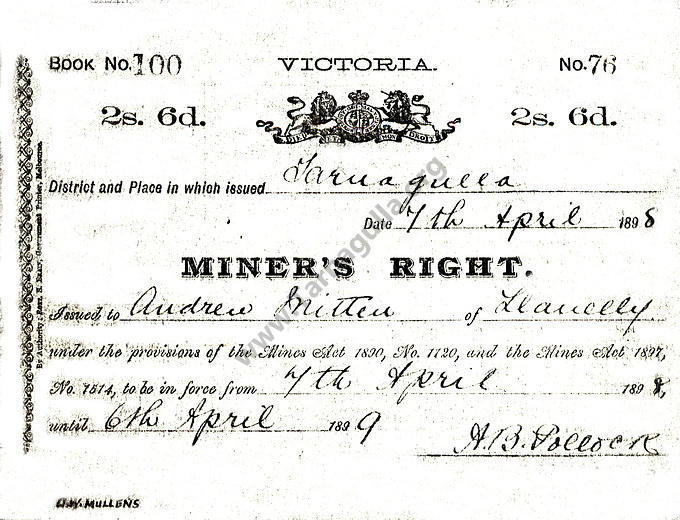 BOOK NO. 100 VICTORIA. No. 76
2s. 6d. 2s. 6d.
DIEU ET MON DROIT
District and Place in which issued Tarnagulla
Date 7th April 1898
MINER'S RIGHT.
Issued to Andrew Mitten of Llanelly
under the provisions of the Mines Act 1890, No. 1120, and the Mines Act 1897,
No. 1514, to be in force from 7th April 1898,
until 6th April 1899
A.B. Pollock
By Authority: Government Printer, Melbourne.
H.W. MULLENS
www.tarnagulla.org